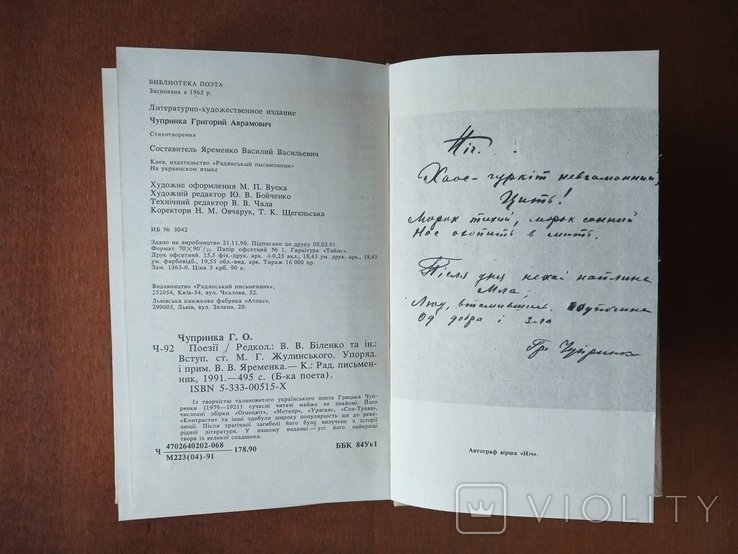 БИБЛИОТЕКА ПОЭТА
Заснована в 1965 р.
Литературно-художественное издание
Чупринка Григорий Аврамович
Стихотворения
Составитель Яременко Василий Васильевич
Киев, издательство «Радянський письменник»
На украинском языке
Художнє оформлення М. П. Вуєка
Художній редактор Ю. В. Бойченко
Технічний редактор В. В. Чала
Коректори Н. М. Овчарук, Т. К. Щегельська
ИБ № 3042
Здано на виробництво 21.11.90. Підписано до друку 05.02.91.
Формат 70×90¹/₃₂. Папір офсетний № 1. Гарнітура «Таймс».
Друк офсетний. 15,5 фіз.-друк. арк. +0,25 вкл., 18,43 ум. друк. арк., 18,43
ум. фарбовідб., 19,55 обл.-вид. арк. Тираж 16 000 пр.
Зам. 1363-0. Ціна 3 крб. 90 к.
Видавництво «Радянський письменник»,
252054, Київ-54, вул. Чкалова, 52.
Львівська книжкова фабрика «Атлас»,
290005, Львів, вул. Зелена, 20.
Чупринка Г. О.
Ч-92 Поезії / Редкол.: В. В. Біленко та ін.;
Вступ. ст. М. Г. Жулинського. Упоряд.
і прим. В. В. Яременка.— К.: Рад. письмен-
ник, 1991.—495 с. (Б-ка поета).
ISBN 5-333-00515-X
Із творчістю талановитого українського поета Грицька Чуп-
ринки (1979—1921) сучасні читачі майже не знайомі. Його
численні збірки «Огнецвіт», «Метеор», «Ураган», «Сон-Трава»,
«Контрасти» та інші здобули широку популярність ще до рево-
люції. Після трагічної загибелі його було вилучено з історії
рідної літератури. У нашому виданні—усі його найкращі
твори із великої спадщини.
Ч 4702640202-068
М223(04)-91 178.90 ББК 84Ук1
Ніч.
Хаос-гуркіт невгамонний,
Цить!
Морок тихий, морок сонний
Нас охопить в мить.
Після дня нехай настане
Мла.
Люд, втомившись,
Од добра і зла
Гр. Чупринка
Автограф вірша «Ніч».
VIOLITY